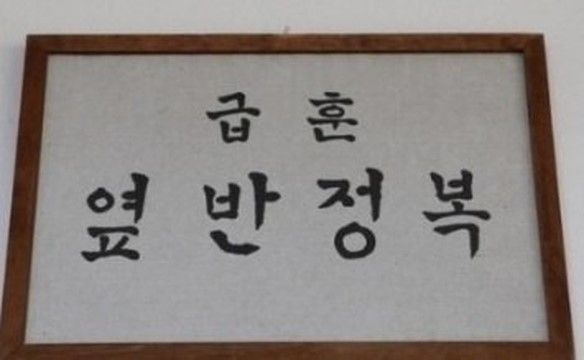 급 훈
옆 반 정 복